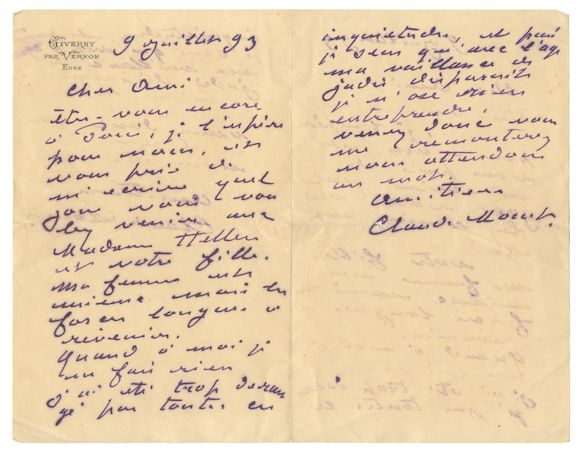 GIVERNY
PAR VERNON
EURE
9 juillet 93
Cher Ami
êtes-vous encore
à Paris, je l'espère
pour nous, et
vous prie de
m'écrire quel
jour vous
venir
Madame Helleu
et votre fille.
Ma femme est
mieux mais les
forces longues à
revenir.
Quand à moi je
ne fais rien
j'ai été trop déran
gé par toutes ces
inquiétudes, et puis
je sens qu'avec l'age
ma vaillance de
jadis disparait
je n'ose rien
entreprendre.
venez donc vous
me remonterez
nous attendons
un mot.
Amitiés
Claude Monet.